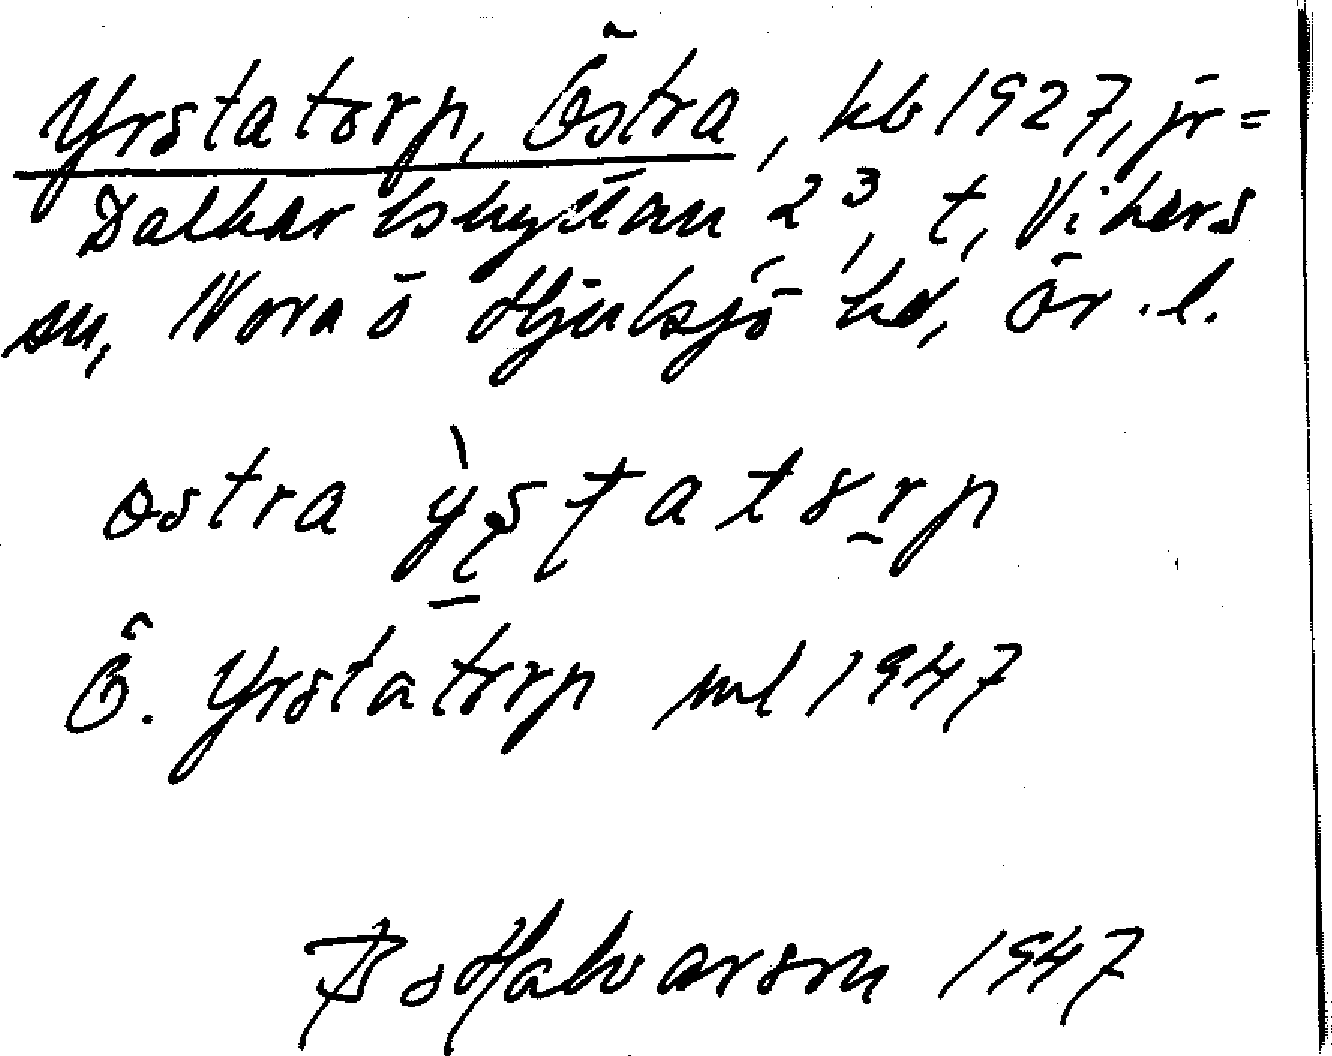 Yrstatorp, Östra, kb 1927, jr =
Dalkarlshyttan 2³, t, Vikers
sn, Nora o Hjulsjö hd, Ör. l.
östra ỳs̩tatorp
Ö. Yrstatorp ml 1947
Bo Halvarson 1947